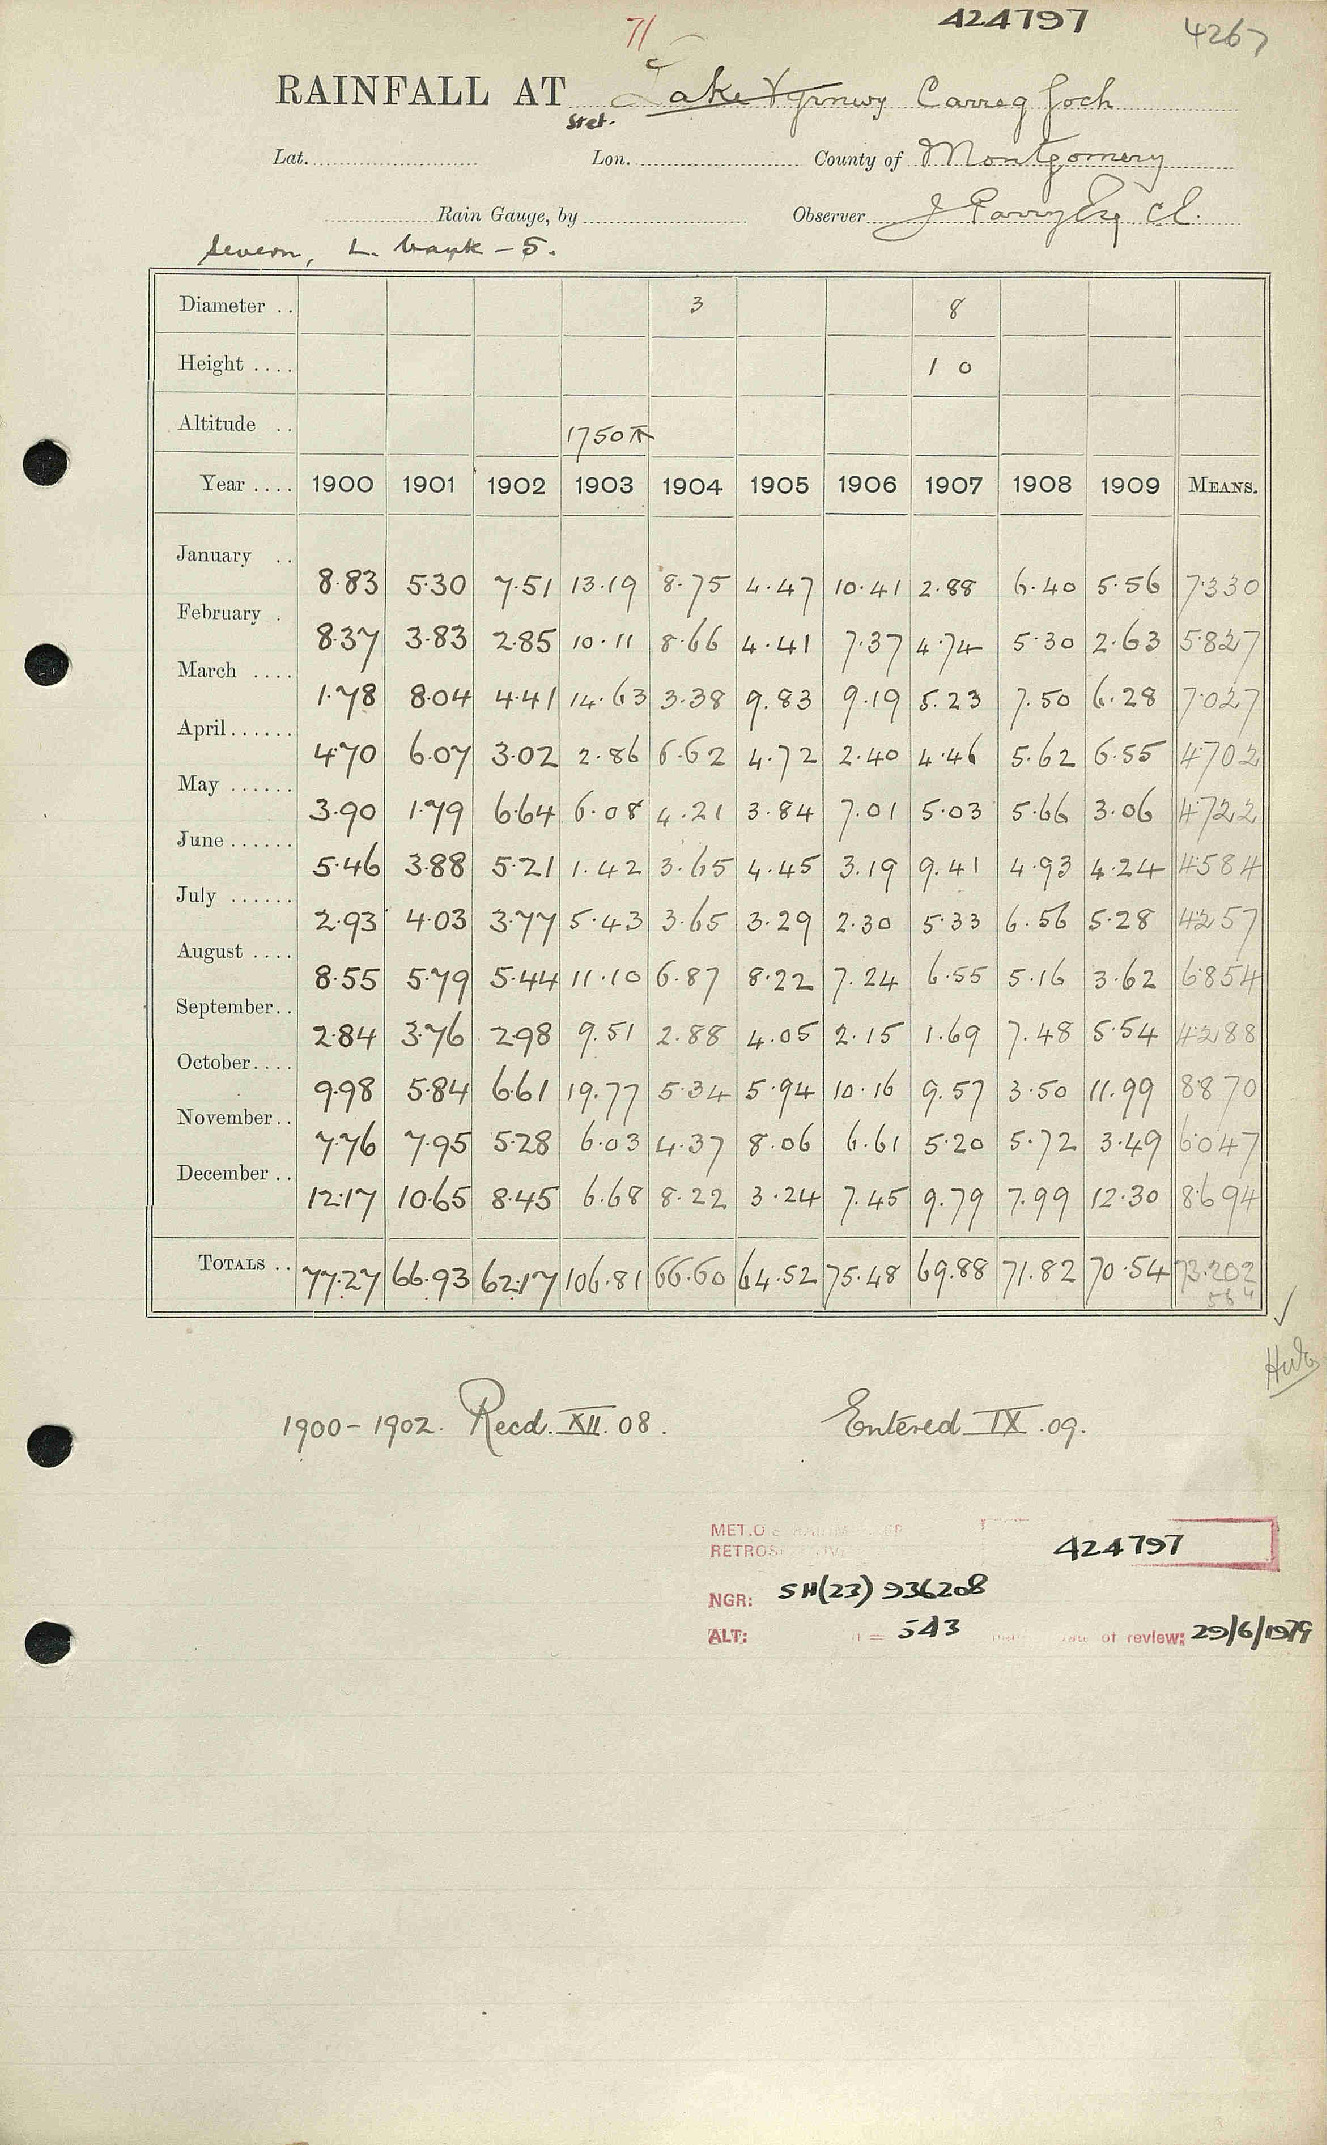 71 424797 4267
RAINFALL AT Lake Vyrnwy Carreg Goch
Stet.
Lat. Lon. County of Montgomery
Rain Gauge, by Observer J Parry Esq CE.
Severn, L. bank - 5.
Diameter .. 3 8
Height .... 1 0
Altitude .. 1750 ft
Year .... 1900 1901 1902 1903 1904 1905 1906 1907 1908 1909 MEANS.
January .. 8.83 5.30 7.51 13.19 8.75 4.47 10.41 2.88 6.40 5.56 7.330
February . 8.37 3.83 2.85 10.11 8.66 4.41 7.37 4.74 5.30 2.63 5.827
March .... 1.78 8.04 4.41 14.63 3.38 9.83 9.19 5.23 7.50 6.28 7.027
April...... 4.70 6.07 3.02 2.86 6.62 4.72 2.40 4.46 5.62 6.55 4.702
May ...... 3.90 1.79 6.64 6.08 4.21 3.84 7.01 5.03 5.66 3.06 4.722
June ...... 5.46 3.88 5.21 1.42 3.65 4.45 3.19 9.41 4.93 4.24 4.584
July ...... 2.93 4.03 3.77 5.43 3.65 3.29 2.30 5.33 6.56 5.28 4.257
August .... 8.55 5.79 5.44 11.10 6.87 8.22 7.24 6.55 5.16 3.62 6.854
September.. 2.84 3.76 2.98 9.51 2.88 4.05 2.15 1.69 7.48 5.54 4.288
October.... 9.98 5.84 6.61 19.77 5.34 5.94 10.16 9.57 3.50 11.99 8.870
November.. 7.76 7.95 5.28 6.03 4.37 8.06 6.61 5.20 5.72 3.49 6.047
December .. 12.17 10.65 8.45 6.68 8.22 3.24 7.45 9.79 7.99 12.30 8.694
TOTALS .. 77.27 66.93 62.17 106.81 66.60 64.52 75.48 69.88 71.82 70.54 73.202
1900-1902. Recd. XII. 08. Entered IX .09.
MET.O 424797
NGR: SH(23) 936208
ALT: = 543 of review: 29/6/1979